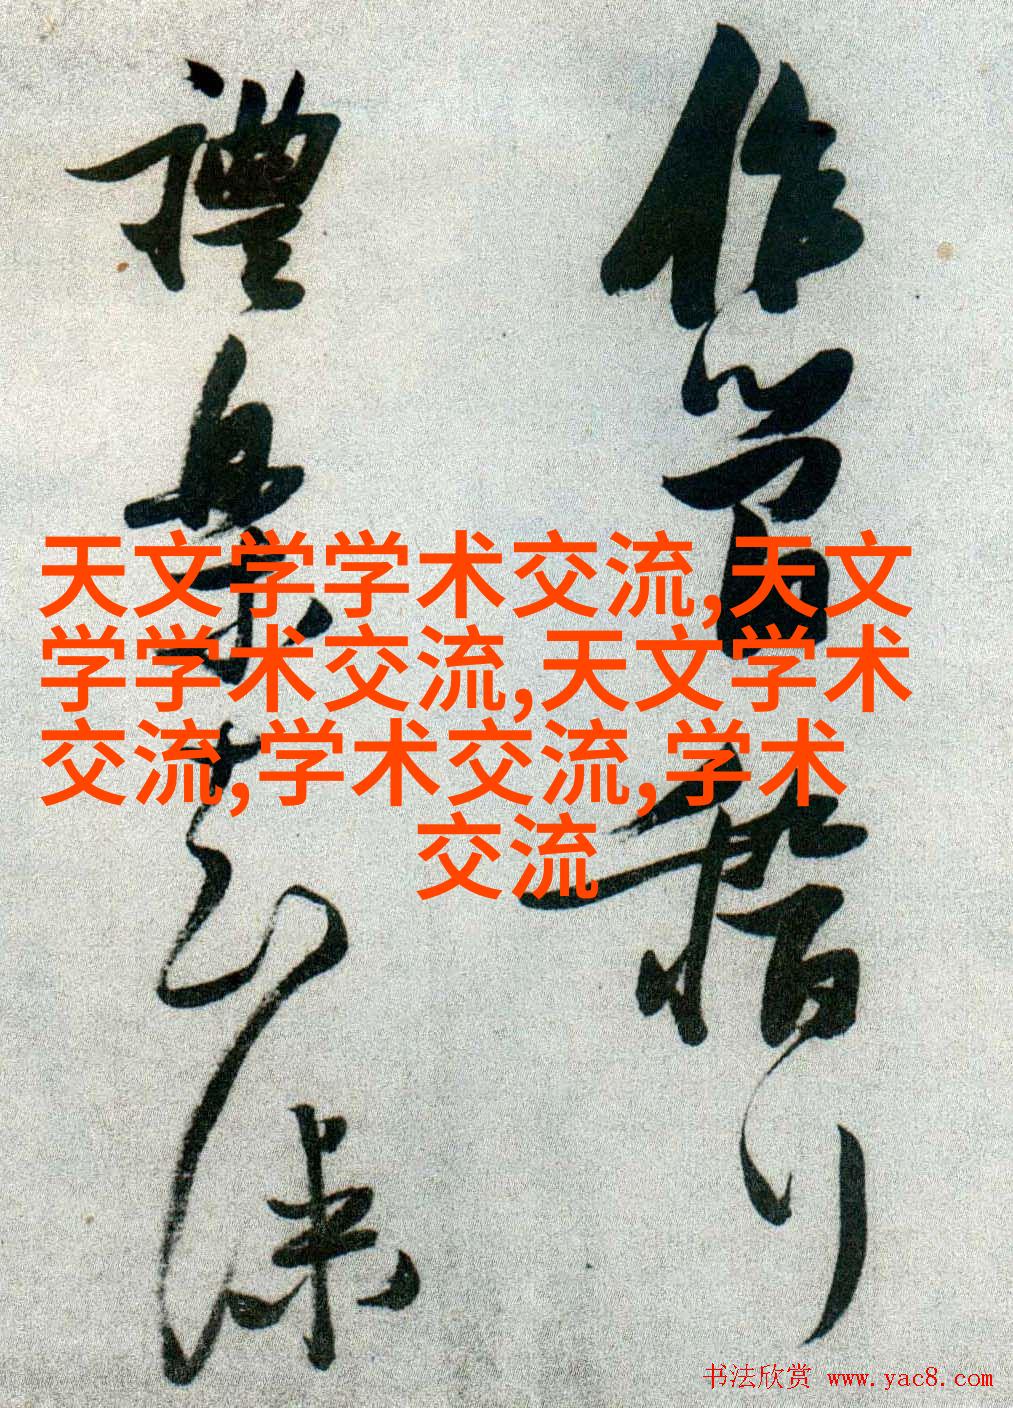 作
禮樂
天文学学术交流,天文
学学术交流,天文学术
交流,学术交流,学术
交流
书法欣赏 www.yac8.com